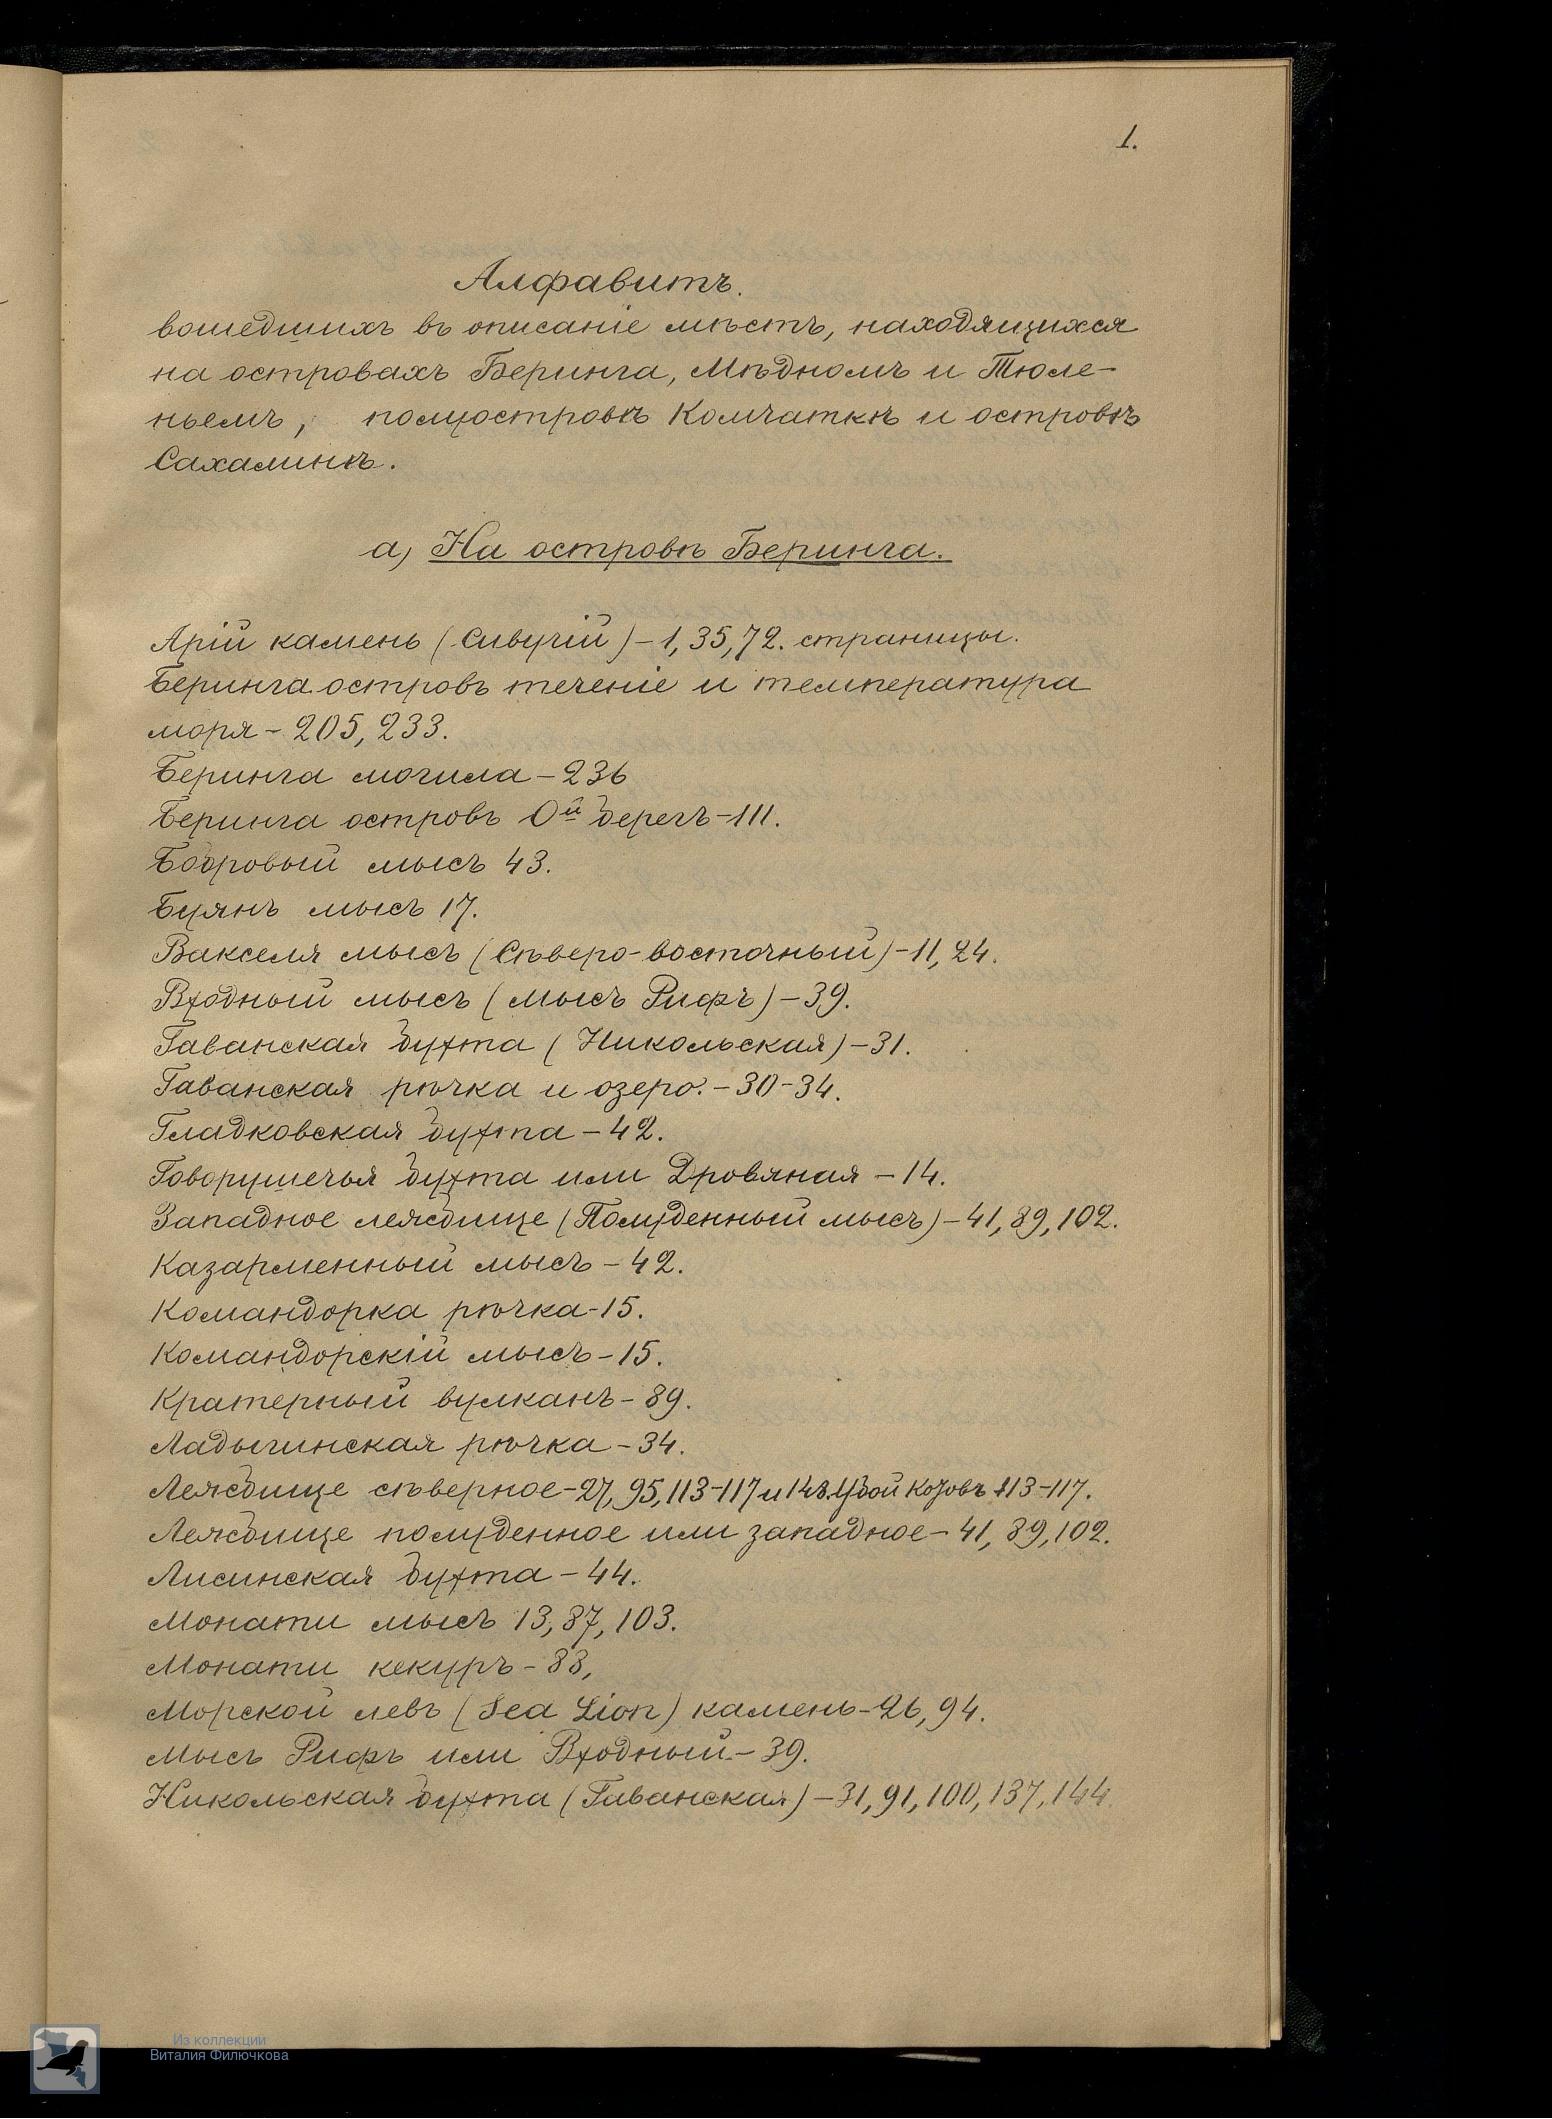 1.
Алфавитъ.
вошедшихъ въ описаніе мѣстъ, находящихся
на островахъ Беринга, Мѣдномъ и Тюле-
ньемъ, полуостровѣ Комчаткѣ и островѣ
Сахалинѣ.
а) На островѣ Беринга.
Арій камень (Сивучій) – 1, 35, 72. страницы.
Беринга островъ теченіе и температура
моря – 205, 233.
Беринга могила – 236
Беринга островъ Ой берегъ – 111.
Бобровый мысъ 43.
Буянъ мысъ 17.
Вакселя мысъ (Сѣверо-восточный) – 11, 24.
Входный мысъ (мысъ Рифъ) – 39.
Гаванская бухта (Никольская) – 31.
Гаванская рѣчка и озеро. – 30-34.
Гладковская бухта – 42.
Говорушечья бухта или Дровяная – 14.
Западное лежбище (Полуденный мысъ) – 41, 89, 102.
Казарменный мысъ – 42.
Командорка рѣчка – 15.
Командорскій мысъ – 15.
Кратерный вулканъ – 89.
Ладыгинская рѣчка – 34.
Лежбище сѣверное – 27, 95, 113-117 и 148. Убой котовъ 113-117.
Лежбище полуденное или западное – 41, 89, 102.
Лисинская бухта – 44.
Монати мысъ 13, 87, 103.
Монати кекуръ – 88,
Морской левъ (Sea Lion) камень – 26, 94.
Мысъ Рифъ или Входный. – 39.
Никольская бухта (Гаванская) – 31, 91, 100, 137, 144.
Из коллекции
Виталия Филючкова